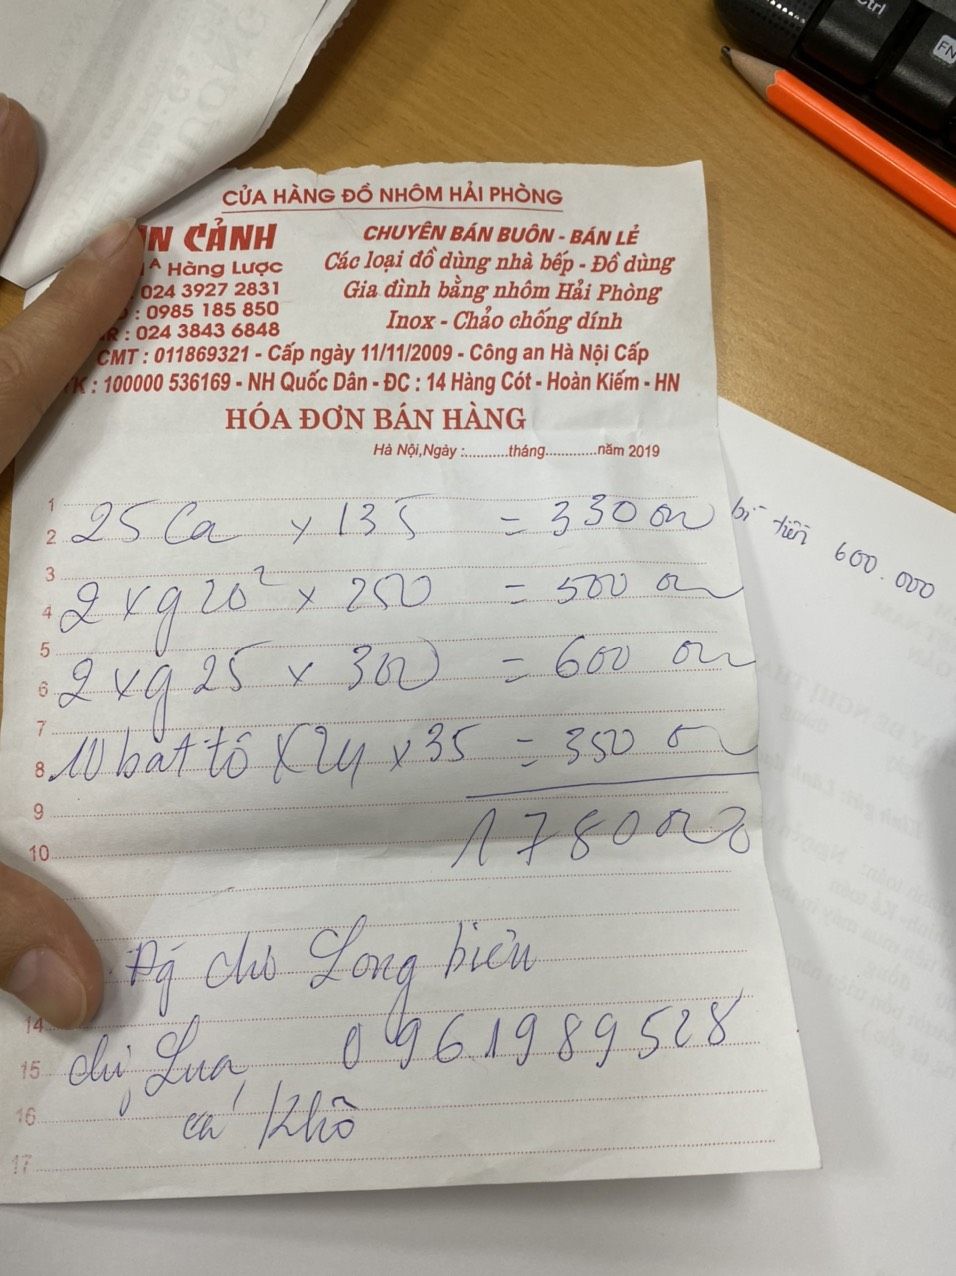 CỬA HÀNG ĐỒ NHÔM HẢI PHÒNG
CẢNH
Hàng Lược
024 3927 2831
: 0985 185 850
: 024 3843 6848
CHUYÊN BÁN BUÔN - BÁN LẺ
Các loại đồ dùng nhà bếp - Đồ dùng
Gia đình bằng nhôm Hải Phòng
Inox - Chảo chống dính
CMT : 011869321 - Cấp ngày 11/11/2009 - Công an Hà Nội Cấp
K : 100000 536169 - NH Quốc Dân - ĐC : 14 Hàng Cót - Hoàn Kiếm - HN
HÓA ĐƠN BÁN HÀNG
Hà Nội,Ngày :..........tháng............năm 2019
1
2 25 Ca x 135 = 330 000
3
4 2 x g 20² x 250 = 500 000
5
6 2 x g 25 x 300 = 600 000
7
8 10 bat tô x 24 x 35 = 350 000
9
10 1780000
chỗ Long biên
14
15 chị Lua 0961989528
16 cá Khô
17
bì tiền 600.000
Ctrl
FN